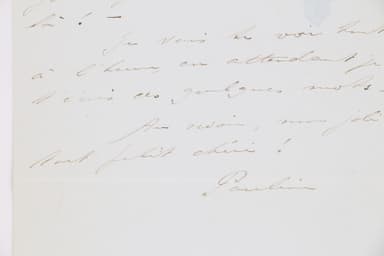 Je vais te voir tout
à l'heure, en attendant je
t'écris ces quelques mots.
Au revoir, mon joli
tout petit chéri !
Pauline